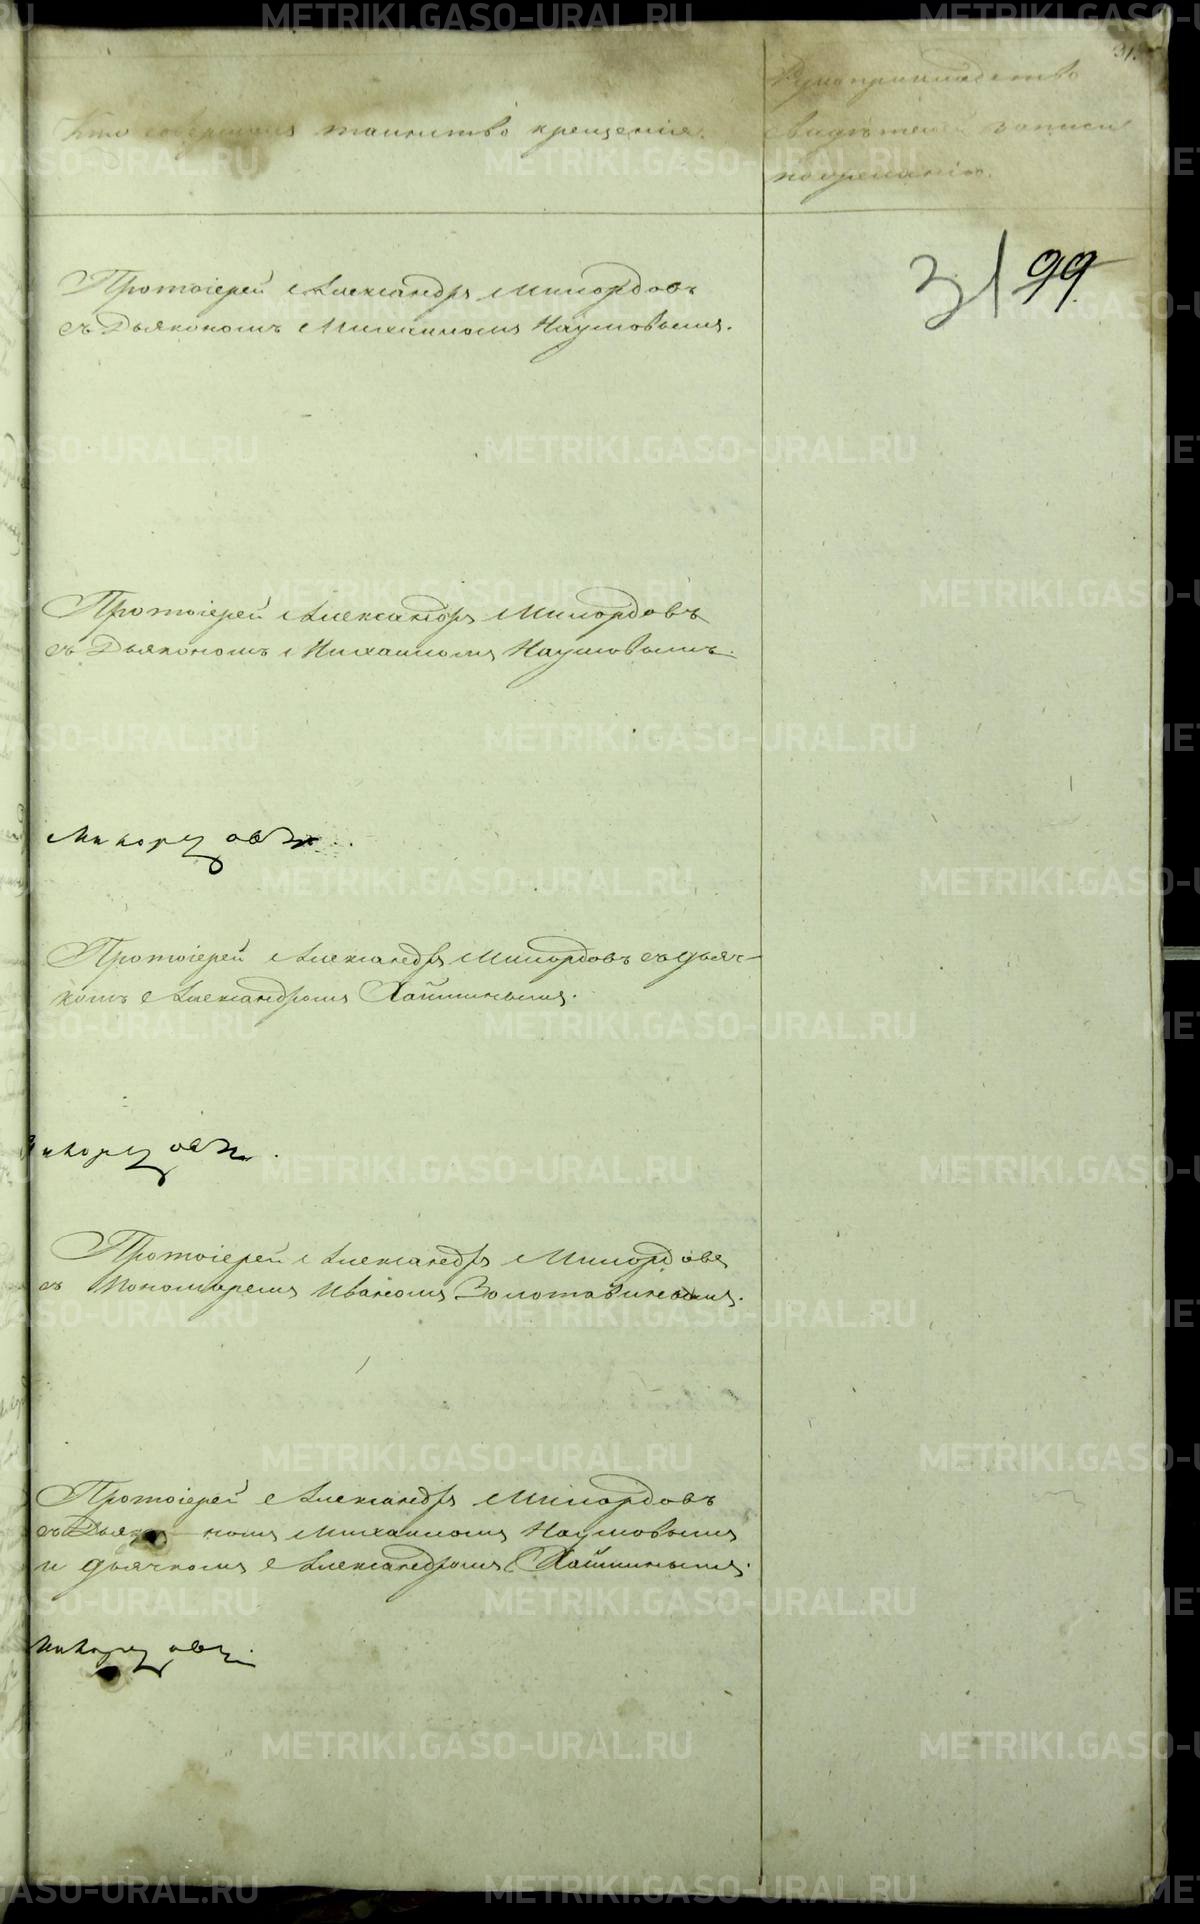 31.
Кто совершалъ таинство крещенія.
Рукоприкладство
свидѣтелей записи
по желанію.
31 99
Протоіерей Александръ Милордовъ
съ Дьякономъ Михаиломъ Наумовымъ.
Протоіерей Александръ Милордовъ
съ Дьякономъ Михаиломъ Наумовымъ.
Милордовъ.
Протоіерей Александръ Милордовъ съ дьяч-
комъ Александромъ Хайминымъ.
Милордовъ.
Протоіерей Александръ Милордовъ
съ Пономаремъ Иваномъ Золотавинымъ.
Протоіерей Александръ Милордовъ
съ Дьякономъ Михаиломъ Наумовымъ
и дьячкомъ Александромъ Хайминымъ.
Милордовъ.
METRIKI.GASO-URAL.RU